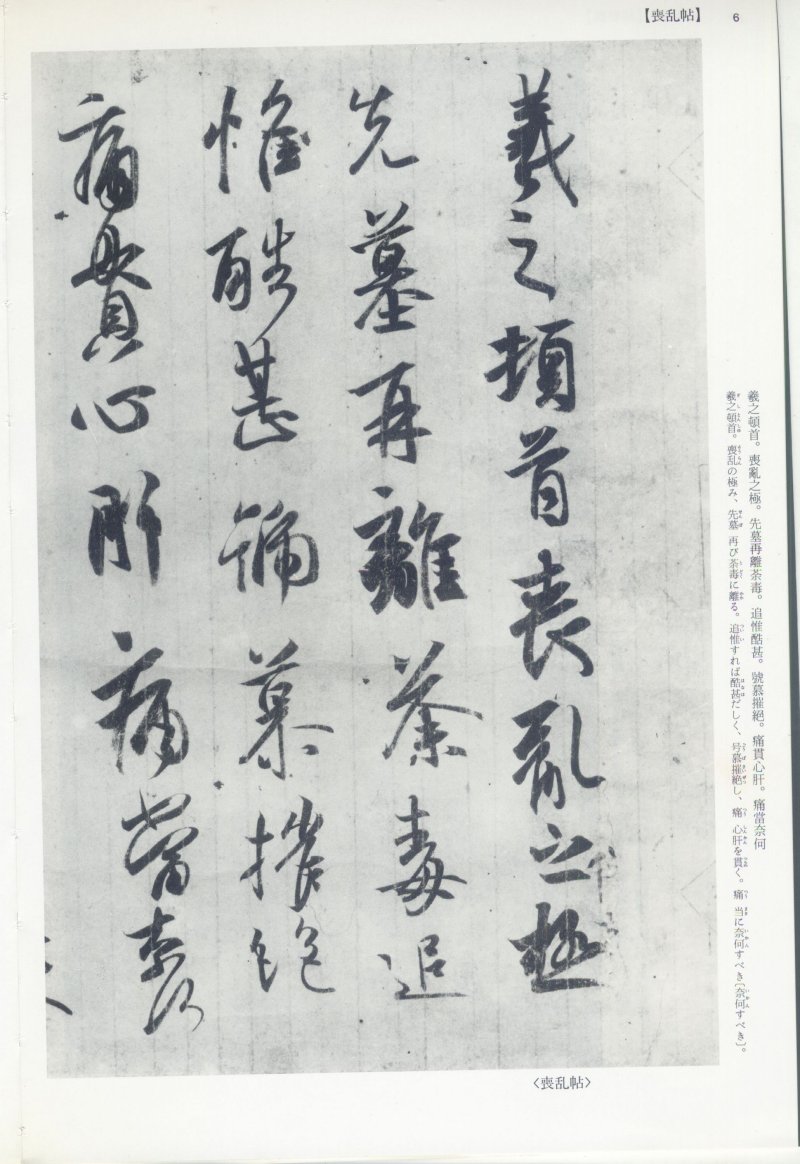 【喪乱帖】 6
羲之頓首喪亂之極
先墓再離荼毒追
惟酷甚號慕摧絶
痛貫心肝痛當奈何
羲之頓首。喪亂之極。先墓再離荼毒。追惟酷甚。號慕摧絕。痛貫心肝。痛當奈何
羲之頓首。喪乱の極み、先墓 再び荼毒に離る。追惟すれば酷甚だしく、号慕摧絶し、痛 心肝を貫く。痛 当に奈何すべき〔奈何すべき〕。
〈喪乱帖〉